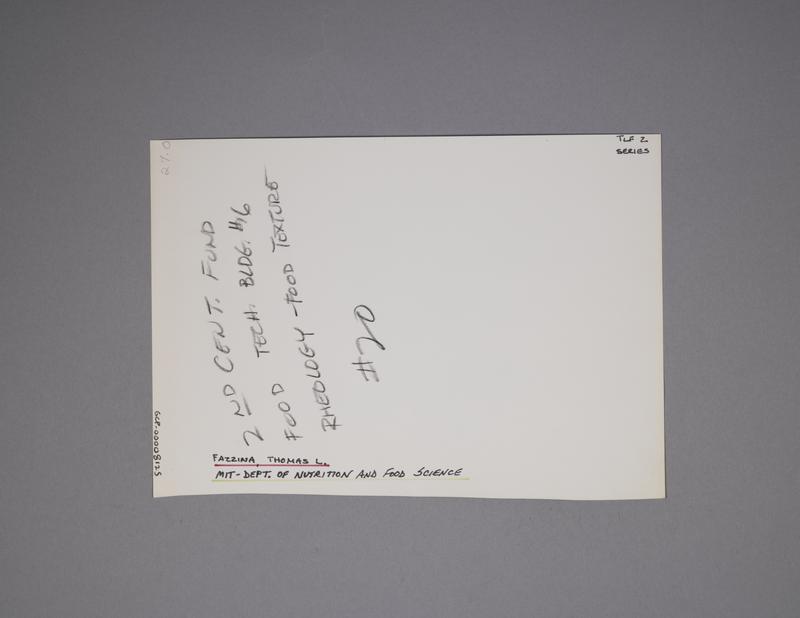 TLF 2
SERIES
27.0
2ND CENT. FUND
FOOD TECH. BLDG. #16
RHEOLOGY - FOOD TEXTURE
#20
GCP-00008125
FAZZINA, THOMAS L.
MIT-DEPT. OF NUTRITION AND FOOD SCIENCE